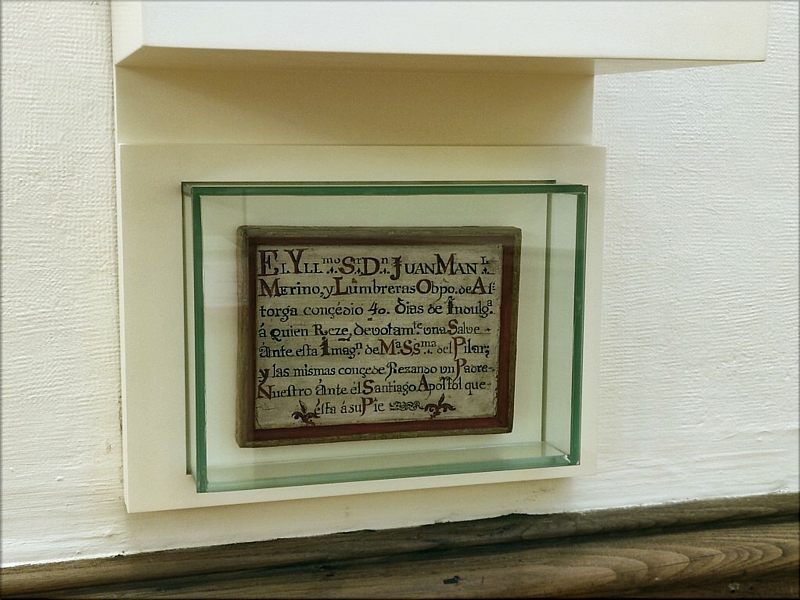 El Yll.mo S.r D.n Juan Man.l
Merino, y Lumbreras Obpo. de As-
torga conçedio 40. dias de Indulg.a
á quien Reze, devotam.te una Salve
ánte esta Imag.n de M.a SS.ma del Pilar;
y las mismas conçede Rezando un Padre
Nuestro ánte el Santiago Apostol que
ésta á su Pie